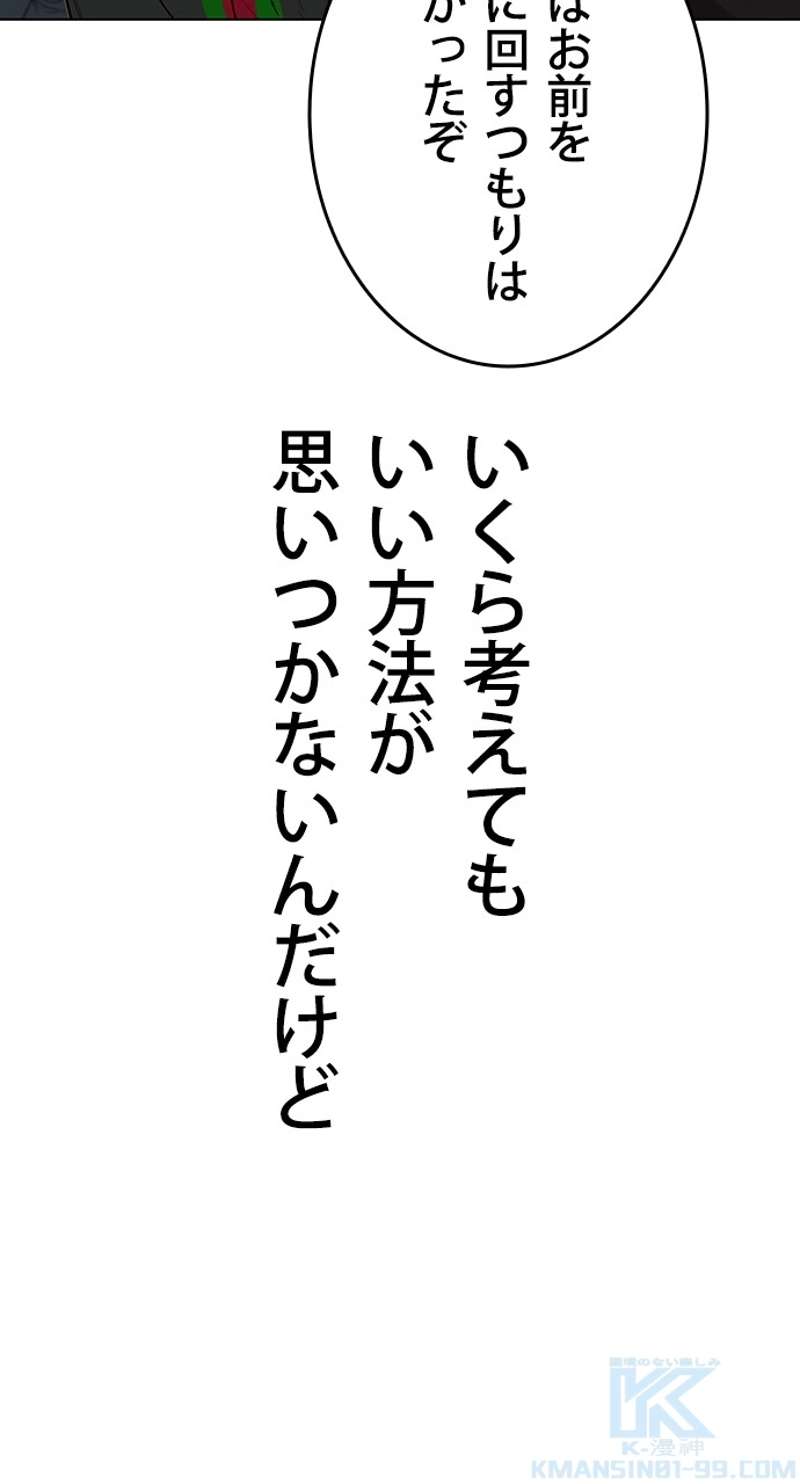 はお前を
に回すつもりは
かったぞ
いくら考えても
いい方法が
思いつかないんだけど
K-漫神
KMANSIN01-99.COM